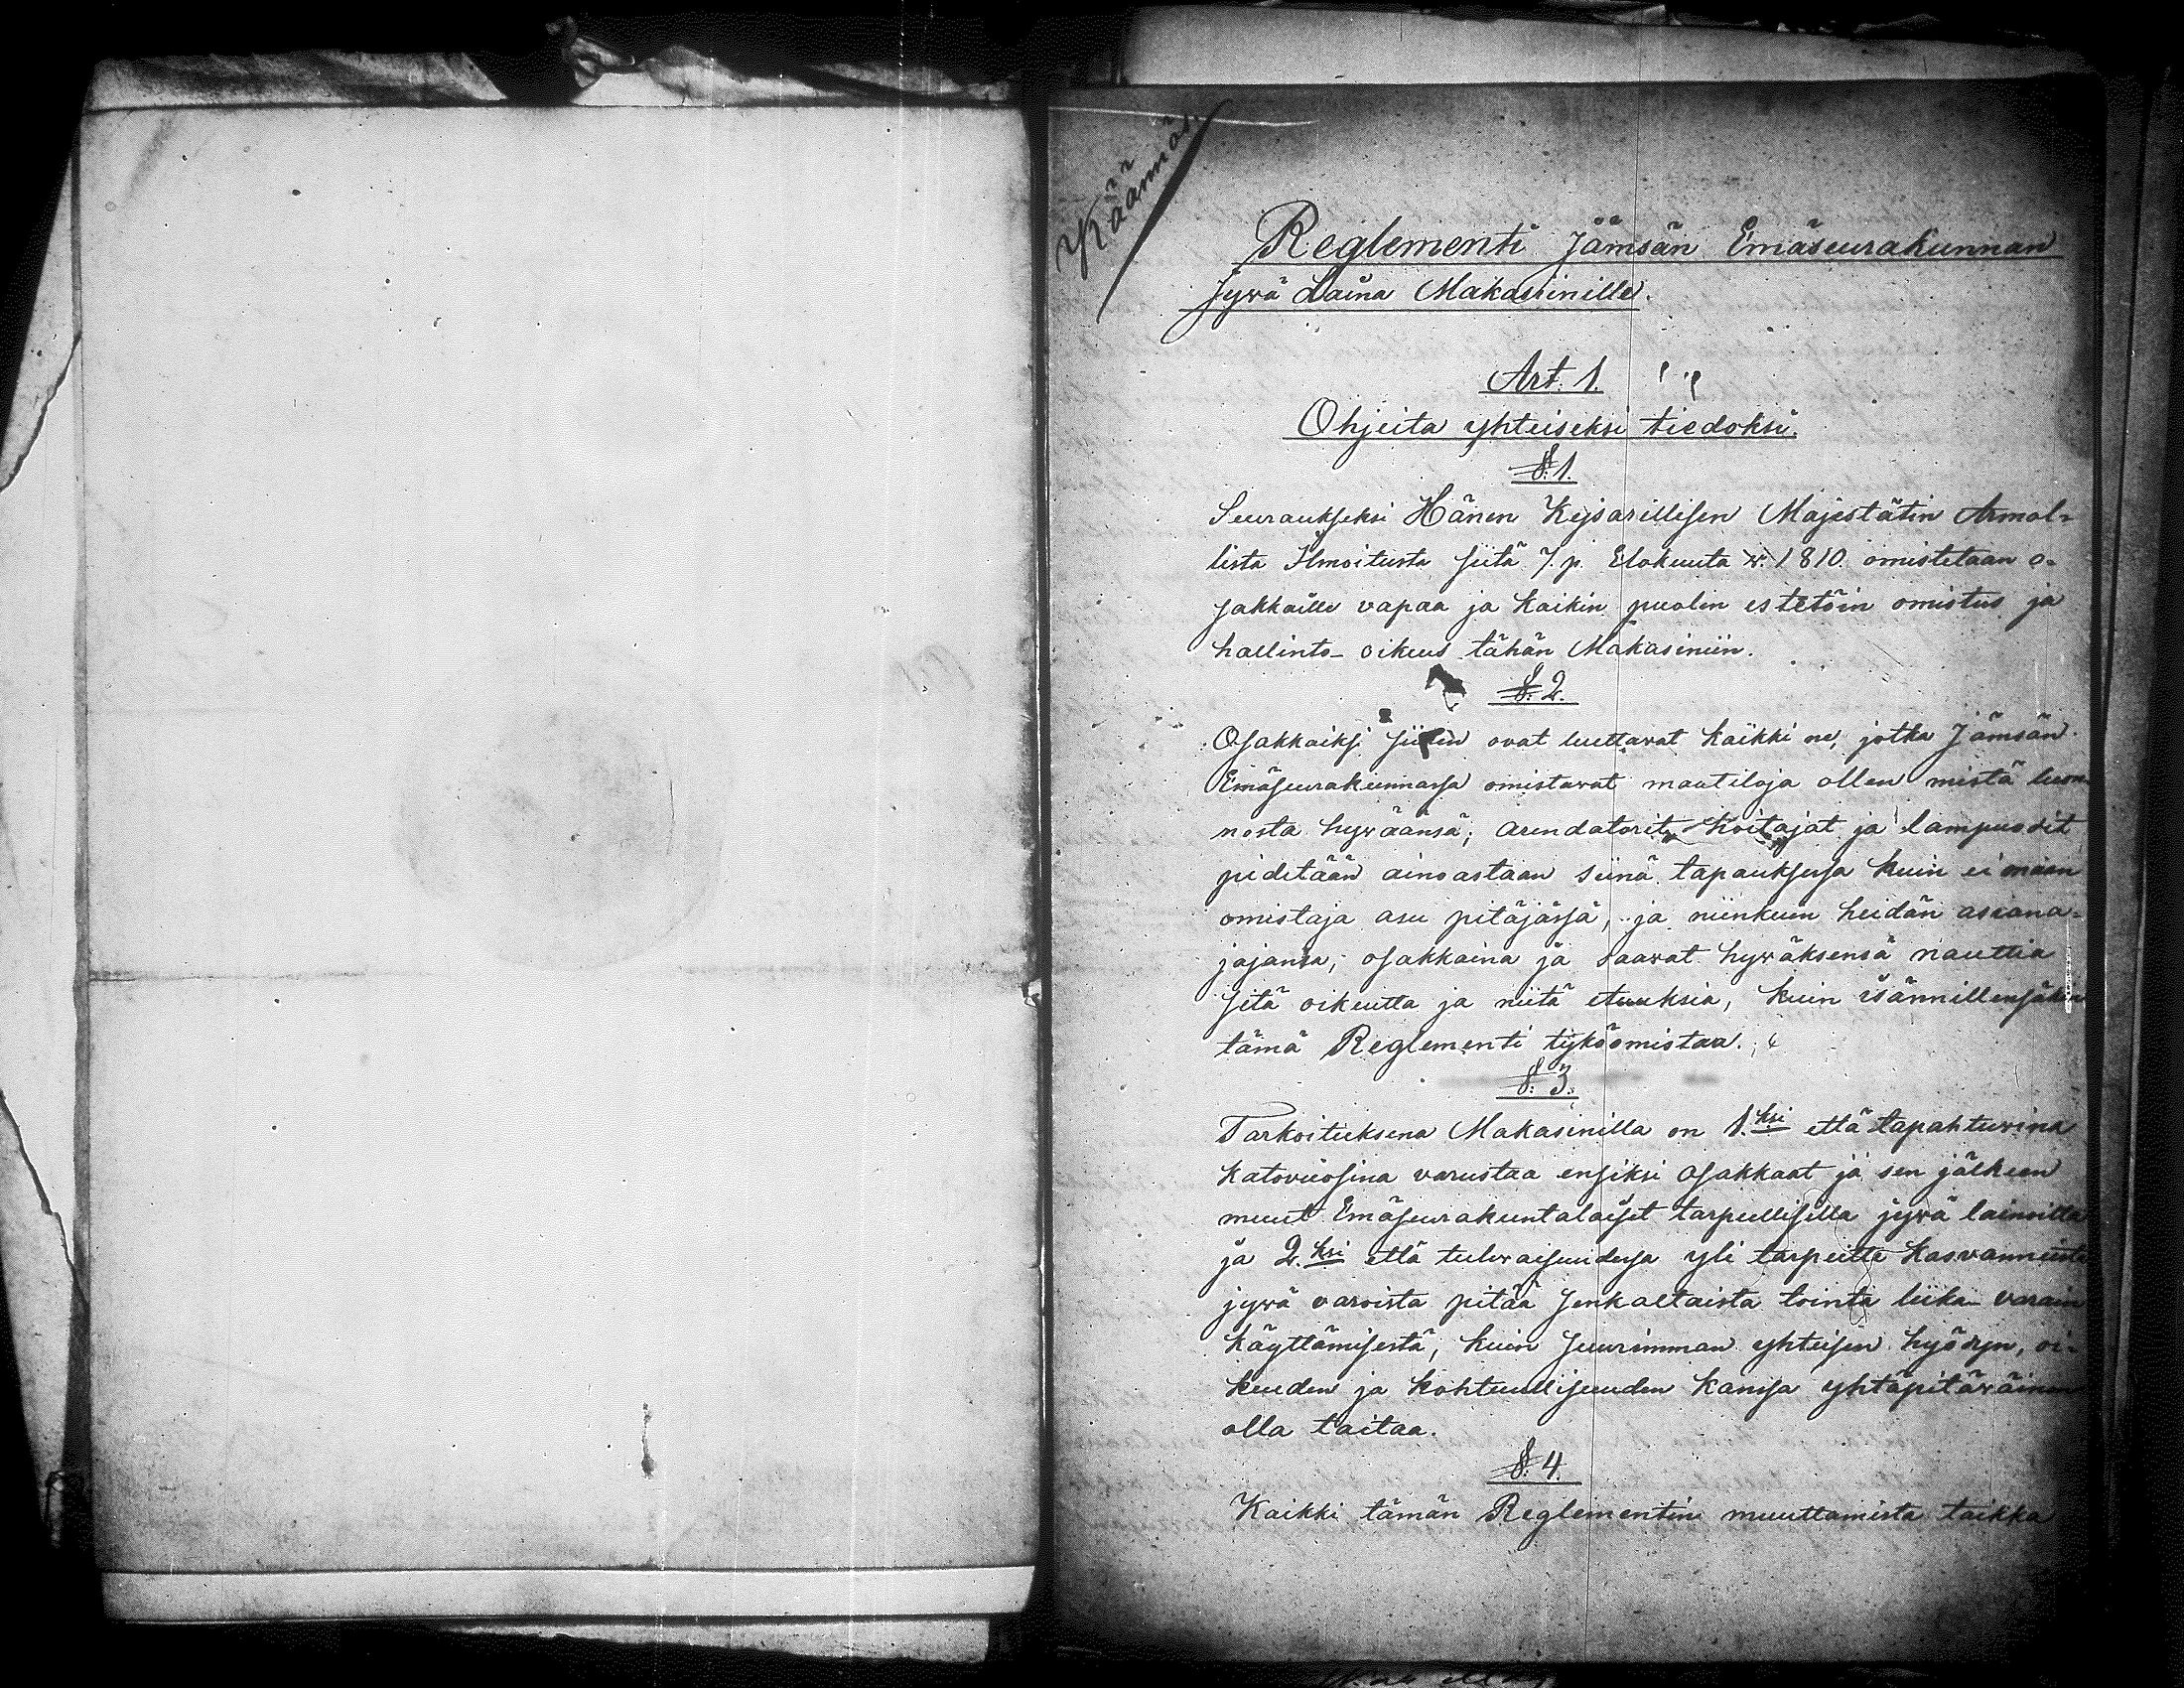 Käännös.
Reglementi Jämsän Emäseurakunnan
Jywä Laina Makasinille.
Art. 1.
Ohjeita yhteiseksi tiedoksi.
§. 1.
Seuraukseksi Hänen Kejsarillisen Majestätin Armol-
lista Ilmoitusta siitä 7. p. Elokuuta w. 1810 omistetaan o-
sakkaille vapaa ja kaikin puolin estetöin omistus ja
hallinto- oikeus tähän Makasiniin.
§. 2.
Osakkaiksi siihen ovat luettavat kaikki ne, jotka Jämsän
Emäseurakunnassa omistavat maatiloja ollen mistä luon-
nosta hywäänsä; arendatorit, hoitajat ja lampuodit
pidetään ainoastaan siinä tapauksessa kuin ei maan
omistaja asu pitäjässä, ja niinkuin heidän asiana-
jajansa, osakkaina ja saavat hywäksensä nauttia
sitä oikeutta ja niitä etuuksia, kuin isännillensäkin
tämä Reglementi tyköomistaa.
§. 3.
Tarkoituksena Makasinilla on 1.ksi että tapahtuvina
katovuosina varustaa ensiksi osakkaat ja sen jälkeen
muut Emäseurakuntalaiset tarpeellisilla jywä lainoilla
ja 2.ksi että tulevaisuudessa yli tarpeitte kasvanneista
jywä varoista pitää senkaltaista tointa liika- varain
käyttämisestä, kuin suurimman yhteisen hyödyn, oi-
keuden ja kohtuullisuuden kanssa yhtäpitäväinen
olla taitaa.
§. 4.
Kaikki tämän Reglementin muuttamista taikka